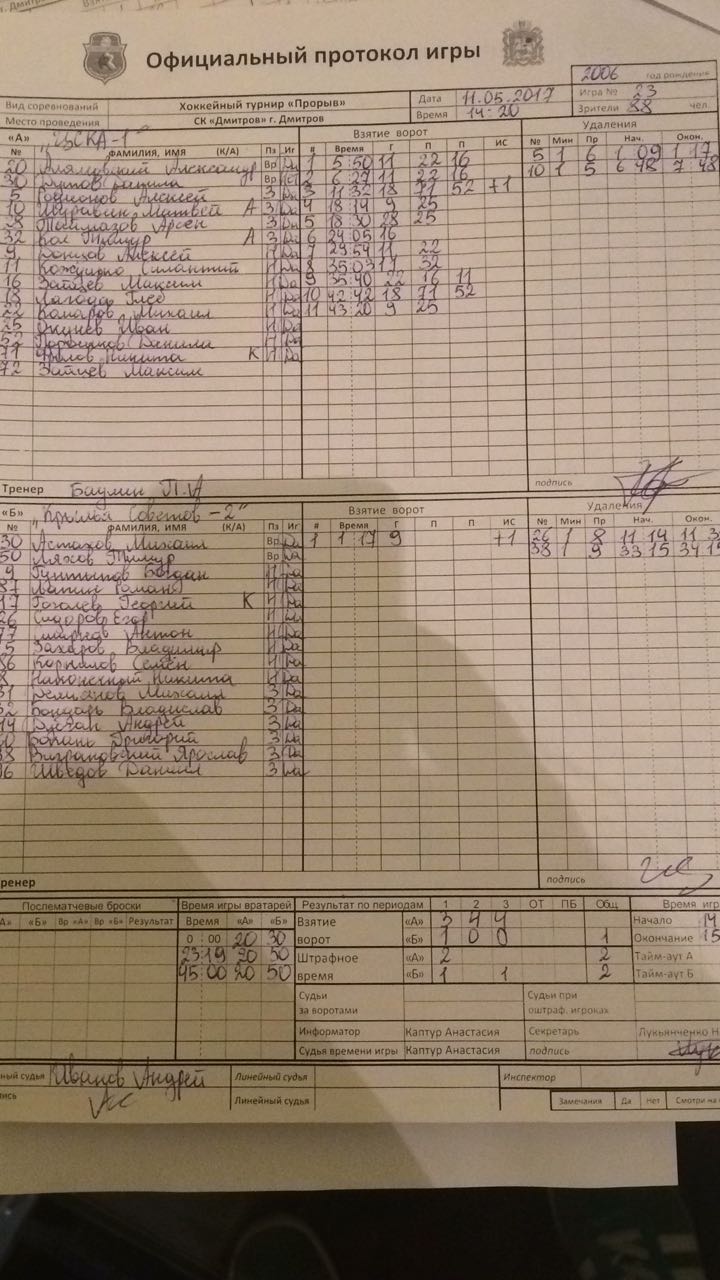 Официальный протокол игры
2006 год рождения
Вид соревнований Хоккейный турнир «Прорыв» Дата 11.05.2017 Игра № 23
Место проведения СК «Дмитров» г. Дмитров Время 14:20 Зрители 88 чел.
«А» "ЦСКА-1" Взятие ворот Удаления
№ ФАМИЛИЯ, ИМЯ (К/А) Пз Иг # Время Г П П ИС № Мин Пр Нач. Окон.
20 Александр Вр Да 1 5:50 11 22 16 5 1 6 1 09 1 17
30 Вр 2 6:27 11 22 16 10 1 5 6 48 7 48
5 Родионов Алексей З Да 3 11 32 18 71 52 +1
10 Журавин Матвей А З Да 4 18:14 9 25
Арсен З Да 5 18:30 28 25
32 Кол Тимур А З Да 6 24:05 16
9 Донцов Алексей Н Да 7 29:54 11 22
11 Н Да 8 35:03 17 32
16 Зайцев Максим Н Да 9 35:40 22 16 11
18 Лагода Глеб Н Да 10 42:42 18 71 52
22 Комаров Михаил Н Да 11 43:20 9 25
25 Окунев Иван Н Да
52 Данила Н Да
71 Фролов Никита К Н Да
72 Зайцев Максим
Тренер Баулин П.А подпись
«Б» "Крылья Советов-2" Взятие ворот Удаления
№ ФАМИЛИЯ, ИМЯ (К/А) Пз Иг # Время Г П П ИС № Мин Пр Нач. Окон.
30 Астахов Михаил Вр Да 1 1 17 9 +1 26 1 8 11 14 11 3
50 Ляхов Тимур Вр Да 38 1 9 33 15 34 15
9 Богдан Н Да
87 Роман Н Да
17 Гоголев Георгий К Н Да
26 Сидоров Егор Н Да
77 Антон Н Да
5 Захаров Владимир Н Да
86 Корнилов Семён Н Да
8 Наконечный Никита Н Да
31 Демьянов Михаил З Да
32 Бондарь Владислав З Да
14 Андрей З Да
Григорий З Да
38 Ярослав З Да
96 Шведов Даниил З Да
Тренер подпись
Послематчевые броски Время игры вратарей Результат по периодам 1 2 3 ОТ ПБ Общ Время игр
«А» «Б» Вр «А» Вр «Б» Результат Время «А» «Б» Взятие «А» 3 4 4 Начало 14
0:00 20 30 ворот «Б» 1 0 0 1 Окончание 15
23:19 20 50 Штрафное «А» 2 2 Тайм-аут А
45:00 20 50 время «Б» 1 1 2 Тайм-аут Б
Судьи за воротами Судьи при оштраф. игроках
Информатор Каптур Анастасия Секретарь Лукьянченко Н
Судья времени игры Каптур Анастасия подпись
ный судья Иванов Андрей Линейный судья Инспектор
Линейный судья Замечания Да Нет Смотри на